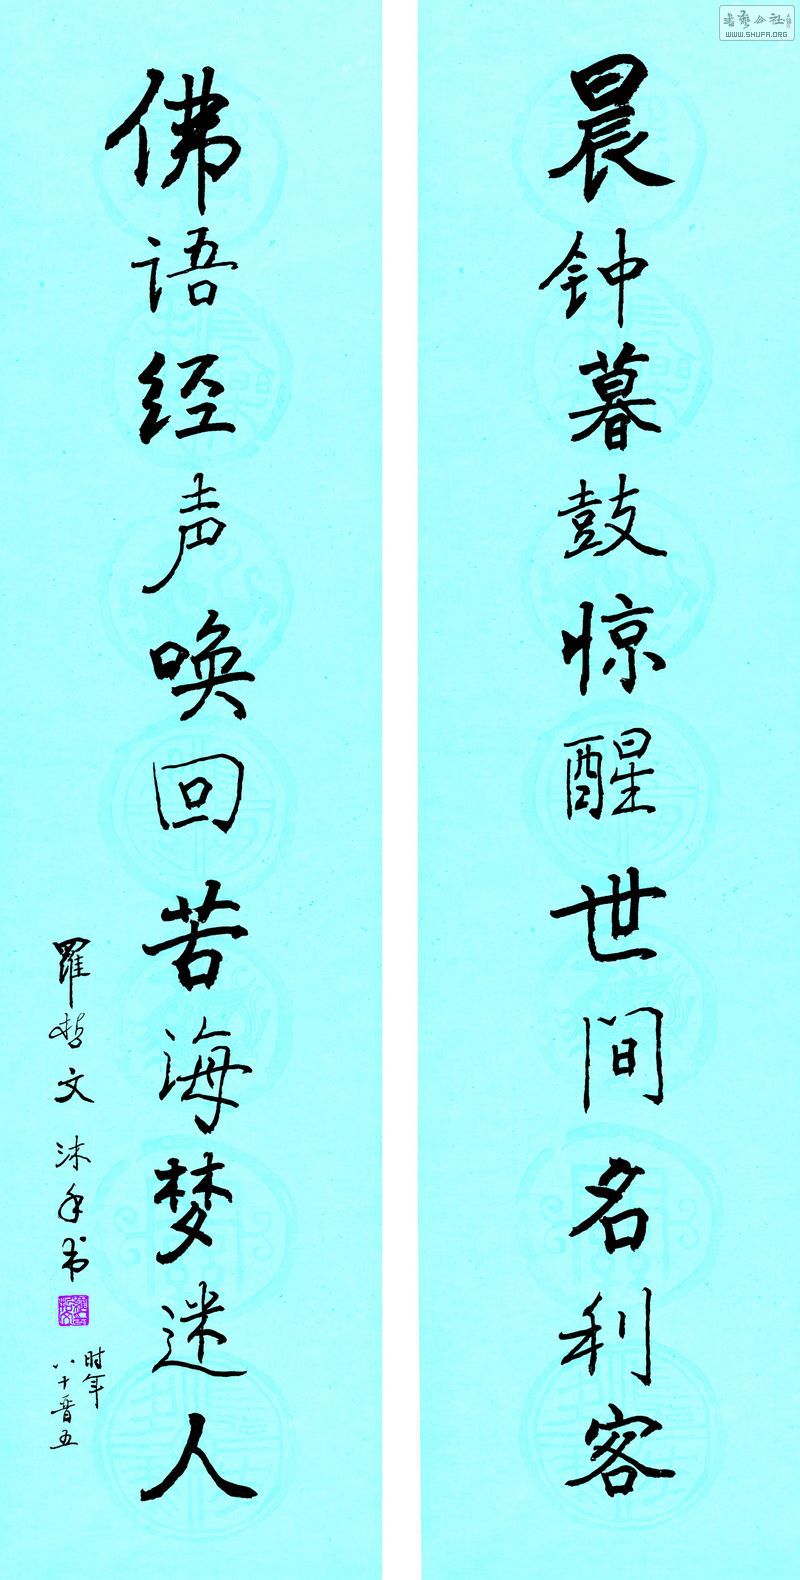 晨钟暮鼓惊醒世间名利客
佛语经声唤回苦海梦迷人
羅哲文沐手书
时年
八十晋五
书艺公社
WWW.SHUFA.ORG